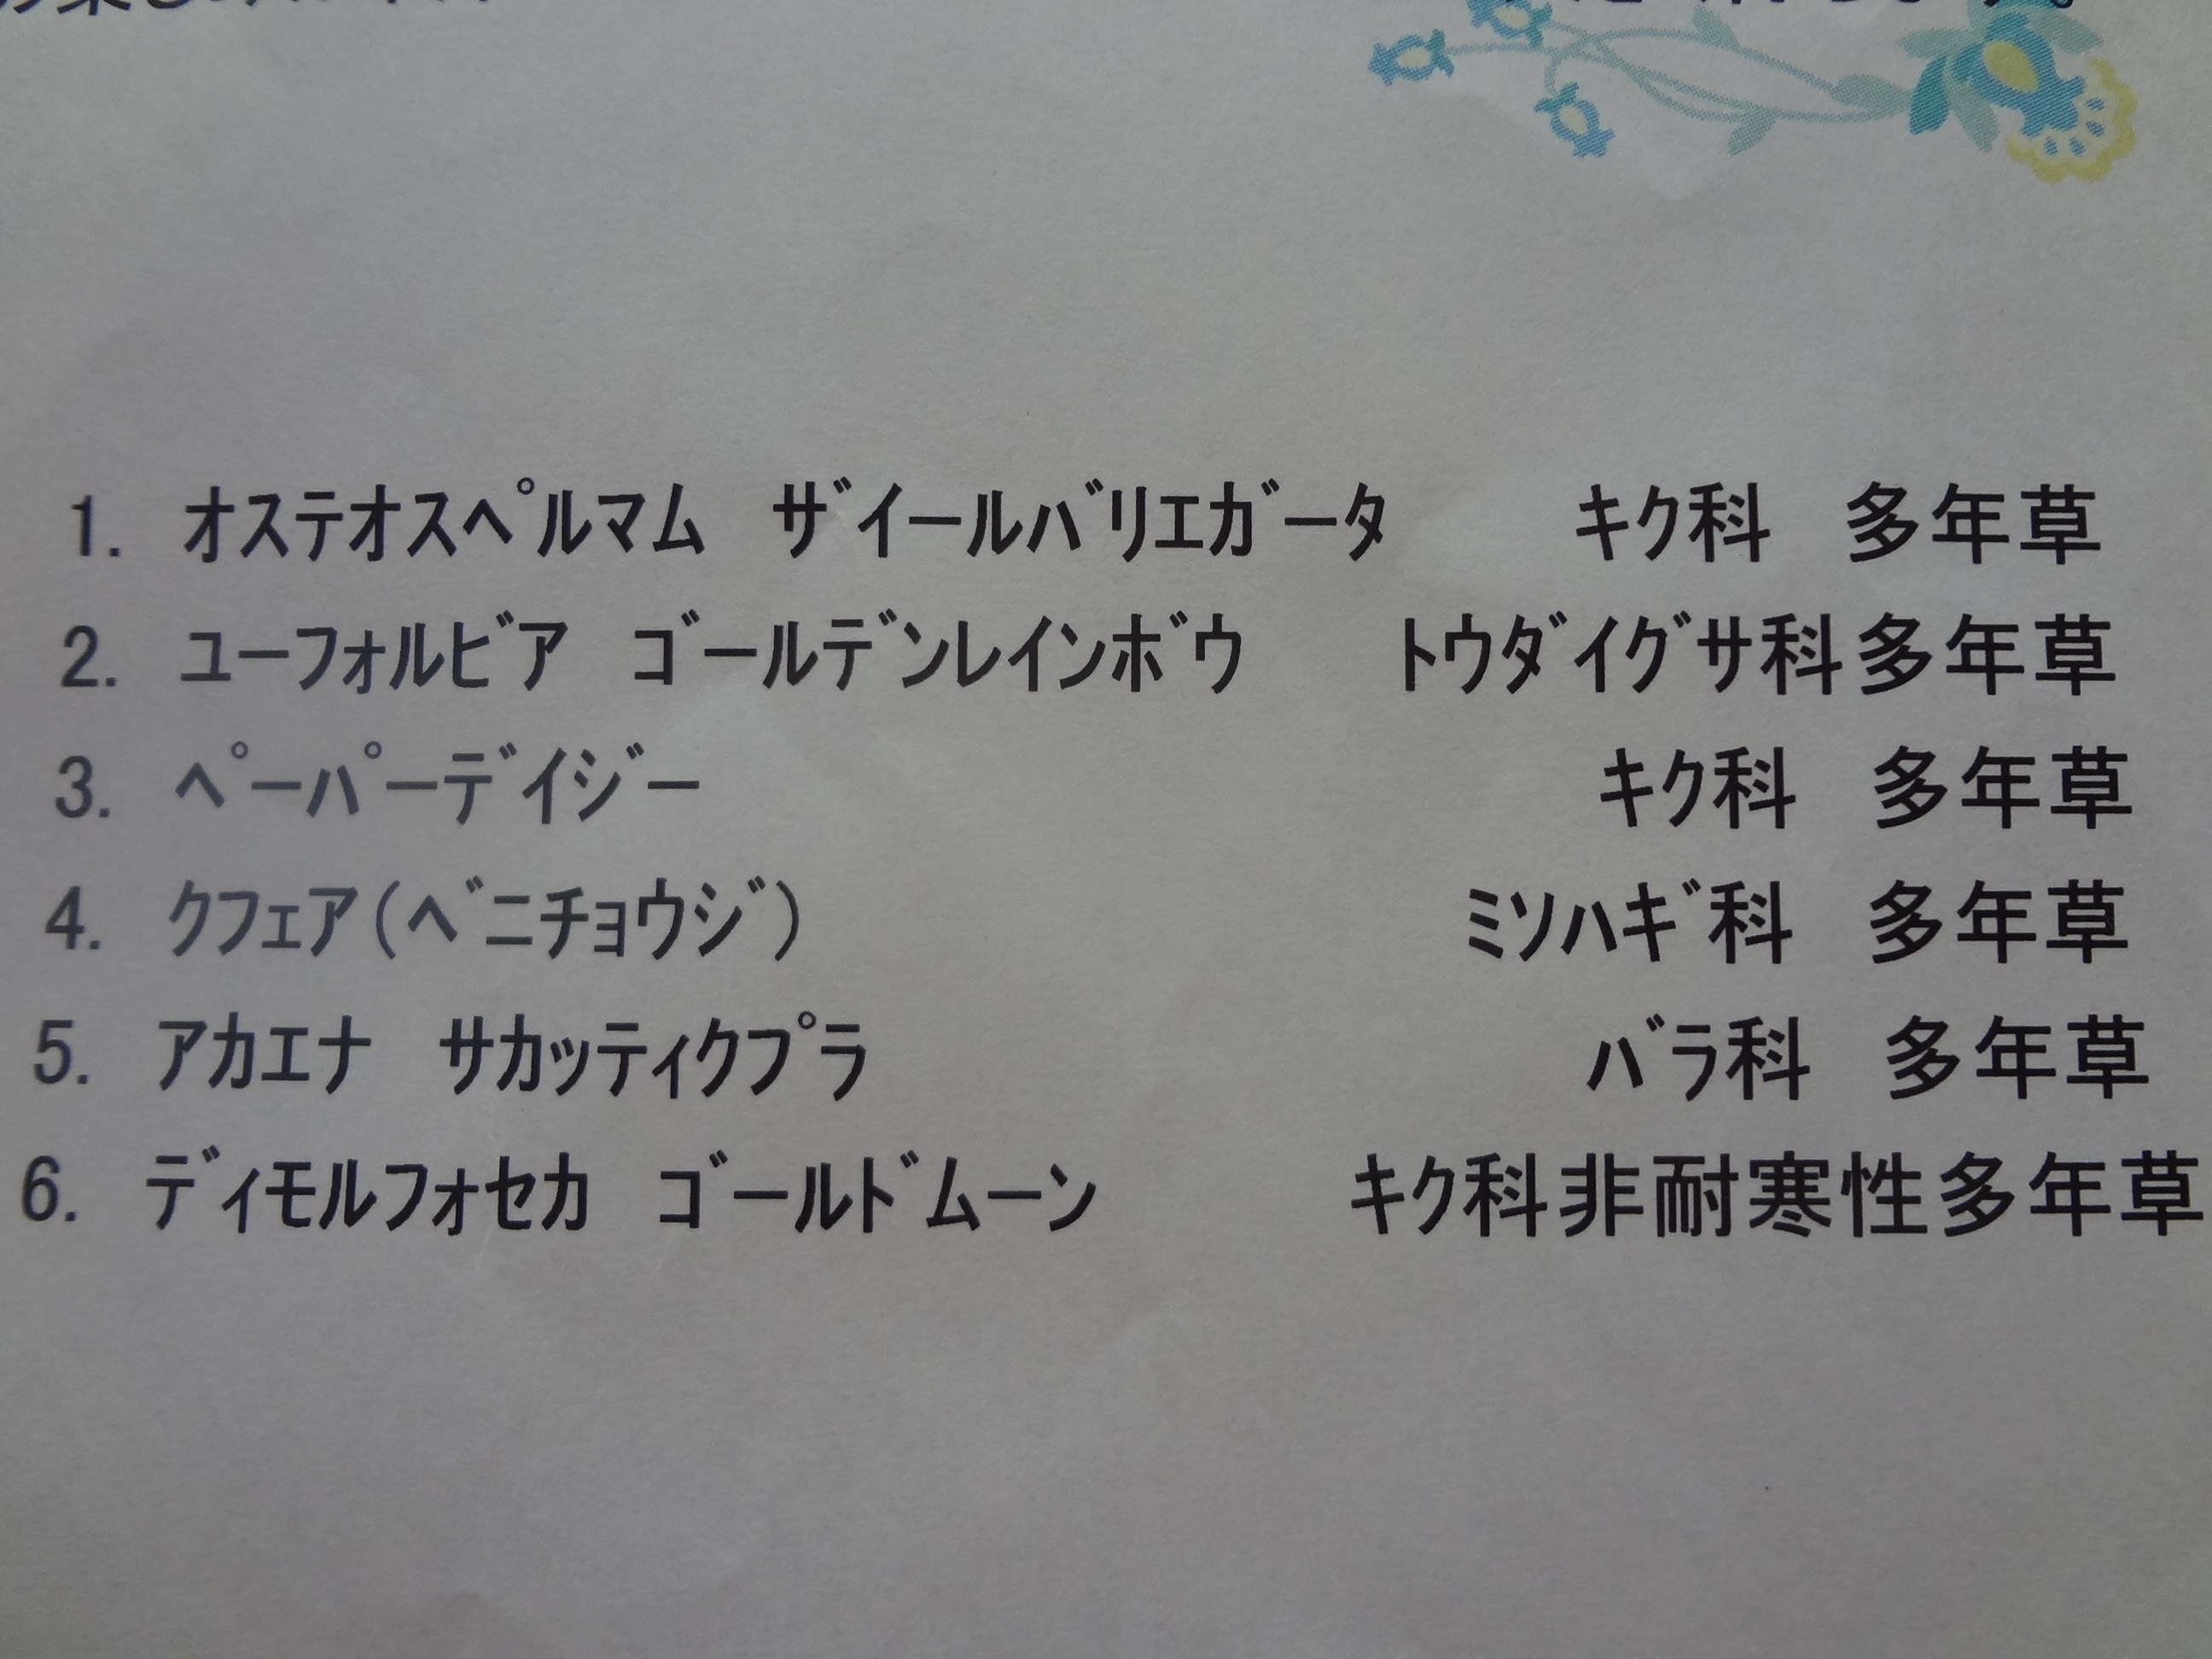 1. ｵｽﾃｵｽﾍﾟﾙﾏﾑ ｻﾞｲｰﾙﾊﾞﾘｴｶﾞｰﾀ ｷｸ科 多年草
2. ﾕｰﾌｫﾙﾋﾞｱ ｺﾞｰﾙﾃﾞﾝﾚｲﾝﾎﾞｳ ﾄｳﾀﾞｲｸﾞｻ科多年草
3. ﾍﾟｰﾊﾟｰﾃﾞｲｼﾞｰ ｷｸ科 多年草
4. ｸﾌｪｱ(ﾍﾞﾆﾁｮｳｼﾞ) ﾐｿﾊｷﾞ科 多年草
5. ｱｶｴﾅ ｻｶｯﾃｨｸﾌﾟﾗ ﾊﾞﾗ科 多年草
6. ﾃﾞｨﾓﾙﾌｫｾｶ ｺﾞｰﾙﾄﾞﾑｰﾝ ｷｸ科非耐寒性多年草